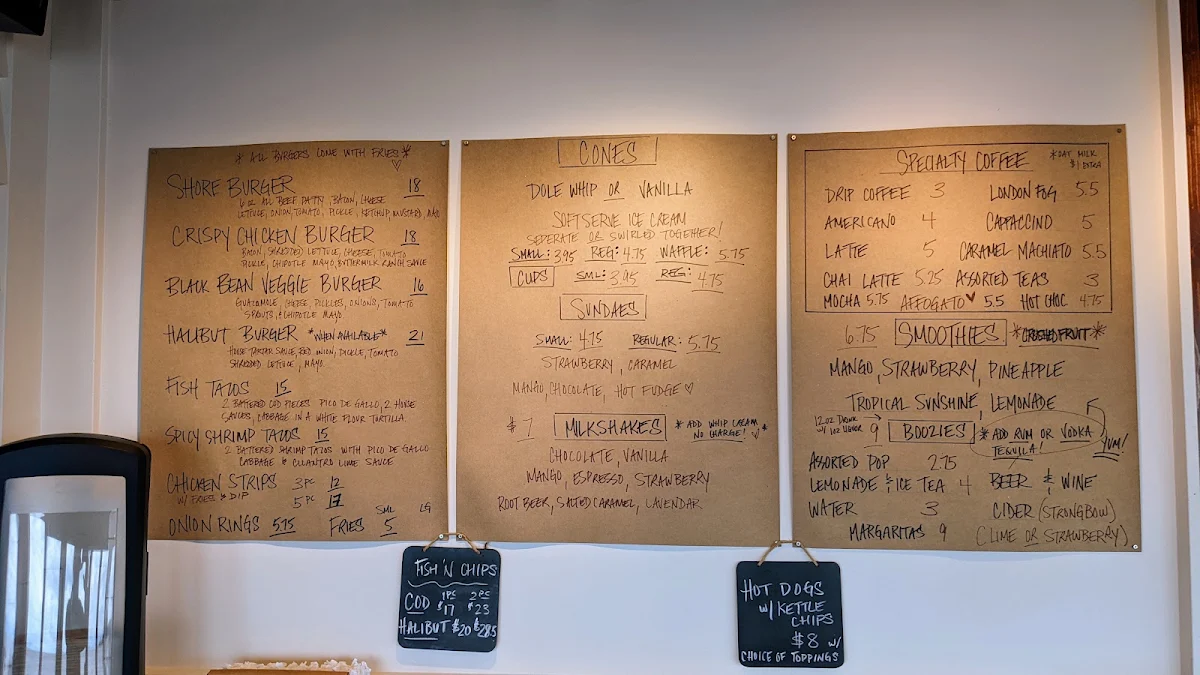 * ALL BURGERS COME WITH FRIES *
SHORE BURGER 18
6 oz ALL BEEF PATTY, BACON, CHEESE
LETTUCE, ONION, TOMATO, PICKLE, KETCHUP, MUSTARD, MAYO
CRISPY CHICKEN BURGER 18
BACON, SHREDDED LETTUCE, CHEESE, TOMATO
PICKLE, CHIPOTLE MAYO, BUTTERMILK RANCH SAUCE
BLACK BEAN VEGGIE BURGER 16
GUACAMOLE, CHEESE, PICKLES, ONIONS, TOMATO
SPROUTS, & CHIPOTLE MAYO
HALIBUT BURGER *WHEN AVAILABLE* 21
HOUSE TARTAR SAUCE, RED ONION, PICKLE, TOMATO
SHREDDED LETTUCE, MAYO
FISH TACOS 15
2 BATTERED COD PIECES PICO DE GALLO, 2 HOUSE
SAUCES, CABBAGE IN A WHITE FLOUR TORTILLA
SPICY SHRIMP TACOS 15
2 BATTERED SHRIMP TACOS WITH PICO DE GALLO
CABBAGE & CILANTRO LIME SAUCE
CHICKEN STRIPS 3PC 12
W/ FRIES & DIP 5PC 17
SML LG
ONION RINGS 5.75 FRIES 5
CONES
DOLE WHIP OR VANILLA
SOFT SERVE ICE CREAM
SEPERATE OR SWIRLED TOGETHER!
SMALL: 3.95 REG: 4.75 WAFFLE: 5.75
CUPS SML: 3.95 REG: 4.75
SUNDAES
SMALL: 4.75 REGULAR: 5.75
STRAWBERRY, CARAMEL
MANGO, CHOCOLATE, HOT FUDGE ♡
$7 MILKSHAKES * ADD WHIP CREAM
NO CHARGE! *
CHOCOLATE, VANILLA
MANGO, ESPRESSO, STRAWBERRY
ROOT BEER, SALTED CARAMEL, LAVENDAR
SPECIALTY COFFEE *OAT MILK
$1 EXTRA
DRIP COFFEE 3 LONDON FOG 5.5
AMERICANO 4 CAPPACCINO 5
LATTE 5 CARAMEL MACHIATO 5.5
CHAI LATTE 5.25 ASSORTED TEAS 3
MOCHA 5.75 AFFOGATO ♥ 5.5 HOT CHOC 4.75
6.75 SMOOTHIES *CRUSHED FRUIT*
MANGO, STRAWBERRY, PINEAPPLE
TROPICAL SUNSHINE, LEMONADE
12 OZ DRINK
W/ 1OZ LIQUOR 9 BOOZIES * ADD RUM OR VODKA
TEQUILA! YUM!
ASSORTED POP 2.75
LEMONADE & ICE TEA 4 BEER & WINE
WATER 3 CIDER (STRONGBOW)
MARGARITAS 9 (LIME OR STRAWBERRY)
FISH 'N CHIPS
1PC 2PC
COD $17 $23
HALIBUT $20 $28.5
HOT DOGS
W/ KETTLE
CHIPS
$8 W/
CHOICE OF TOPPINGS